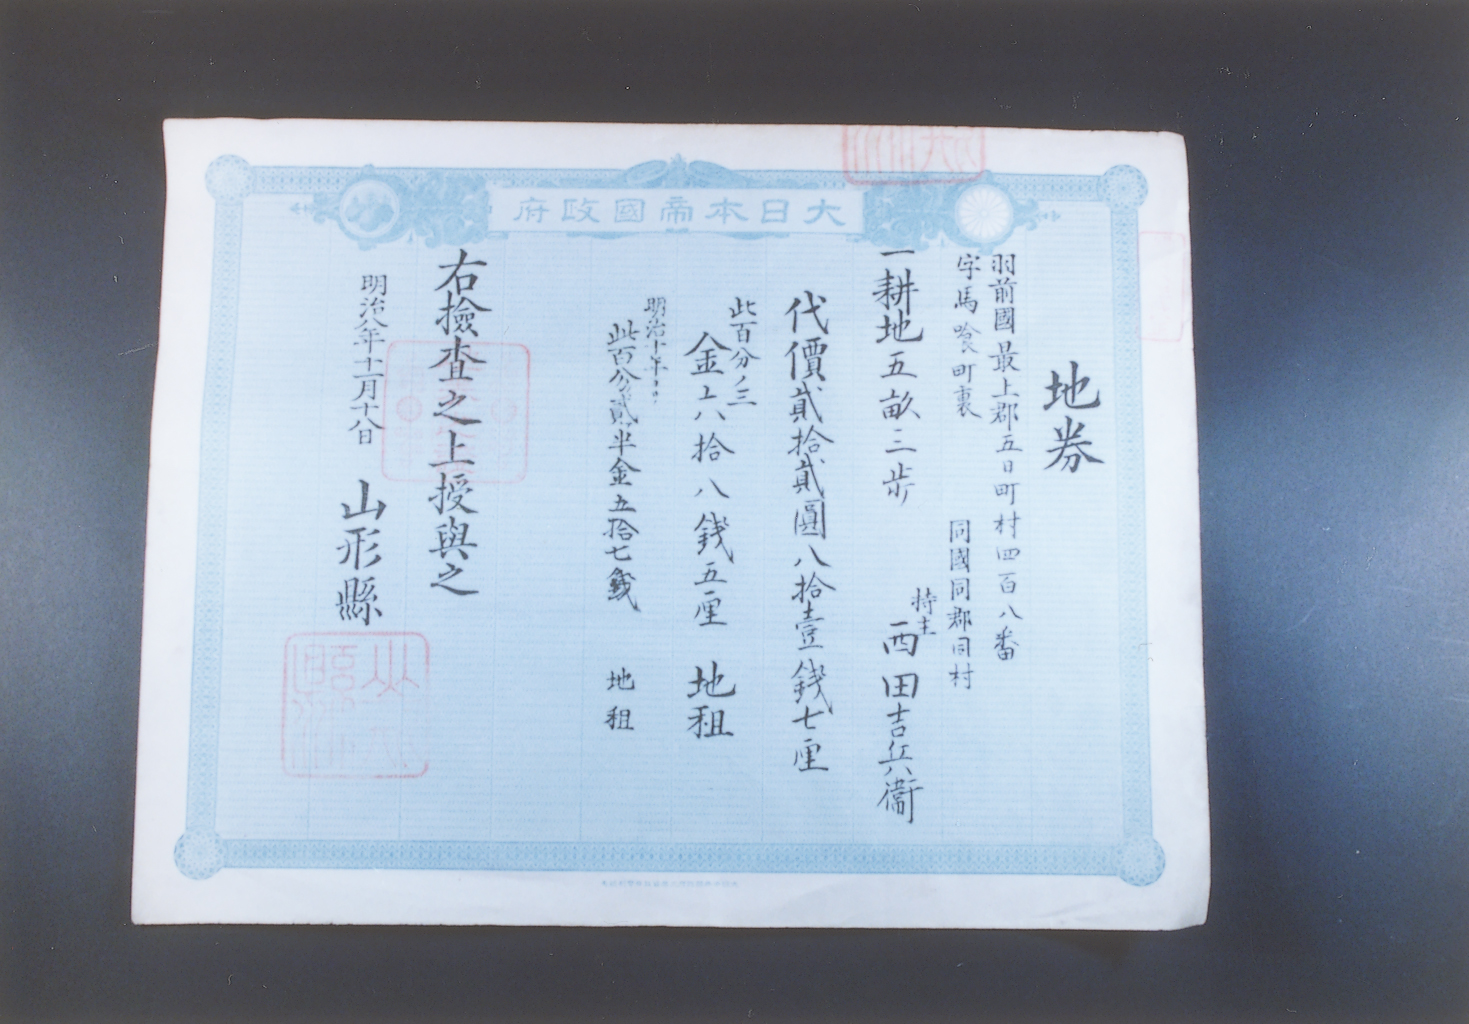 大日本帝國政府
地券
羽前國最上郡五日町村四百八番
字馬喰町裏
同國同郡同村
一耕地五畝三歩
持主
西田吉兵衞
代價貳拾貳圓八拾壹錢七厘
此百分ノ三
金六拾八錢五厘
地租
明治十年ヨリ
此百分ノ貳半金五拾七錢
地租
右撿査之上授與之
明治八年十一月十八日
山形縣